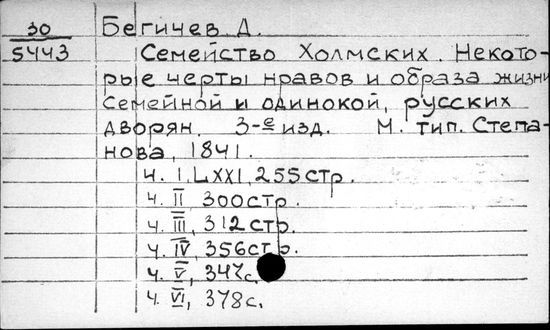 30 Бегичев Д.
5443 Семейство Холмских. Некото-
рые черты нравов и образа жизни
семейной и одинокой, русских
дворян. 3-е изд. М. тип. Степа-
нова, 1841.
ч. I, LXXI, 255 стр.
ч. II, 300 стр.
ч. III, 312 стр.
ч. IV, 356 стр.
ч. V, 347 с.
ч. VI, 378 с.